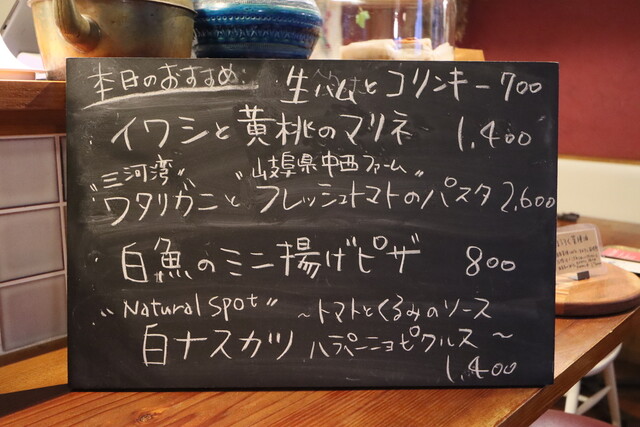 本日のおすすめ: 生ハムとコリンキー 700
イワシと黄桃のマリネ 1,400
"三河湾" "岐阜県中西ファーム"
ワタリガニとフレッシュトマトのパスタ 2,600
白魚のミニ揚げピザ 800
"Natural Spot" ~トマトとくるみのソース
白ナスカツ ハラペーニョピクルス~
1,400